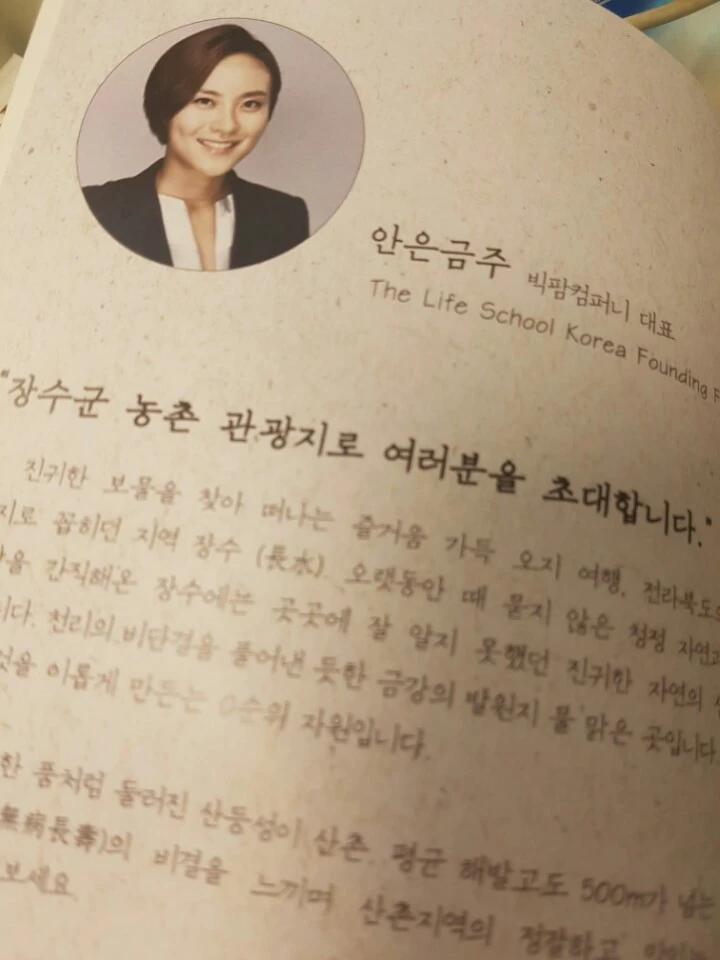 안은금주 빅팜컴퍼니 대표
The Life School Korea Founding
"장수군 농촌 관광지로 여러분을 초대합니다."
진귀한 보물을 찾아 떠나는 즐거움 가득 오지 여행. 전라북도
지로 꼽히던 지역 장수 (長水). 오랫동안 때 묻지 않은 청정 자연
을 간직해온 장수에는 곳곳에 잘 알지 못했던 진귀한 자연의
니다. 천리의 비단결을 풀어낸 듯한 금강의 발원지 물 맑은 곳입니다.
것을 이롭게 만드는 0순위 자원입니다.
한 풍처럼 둘러진 산등성이 산촌. 평균 해발고도 500m가 넘는
無病長壽)의 비결을 느끼며 산촌지역의 정갈하고
보세요